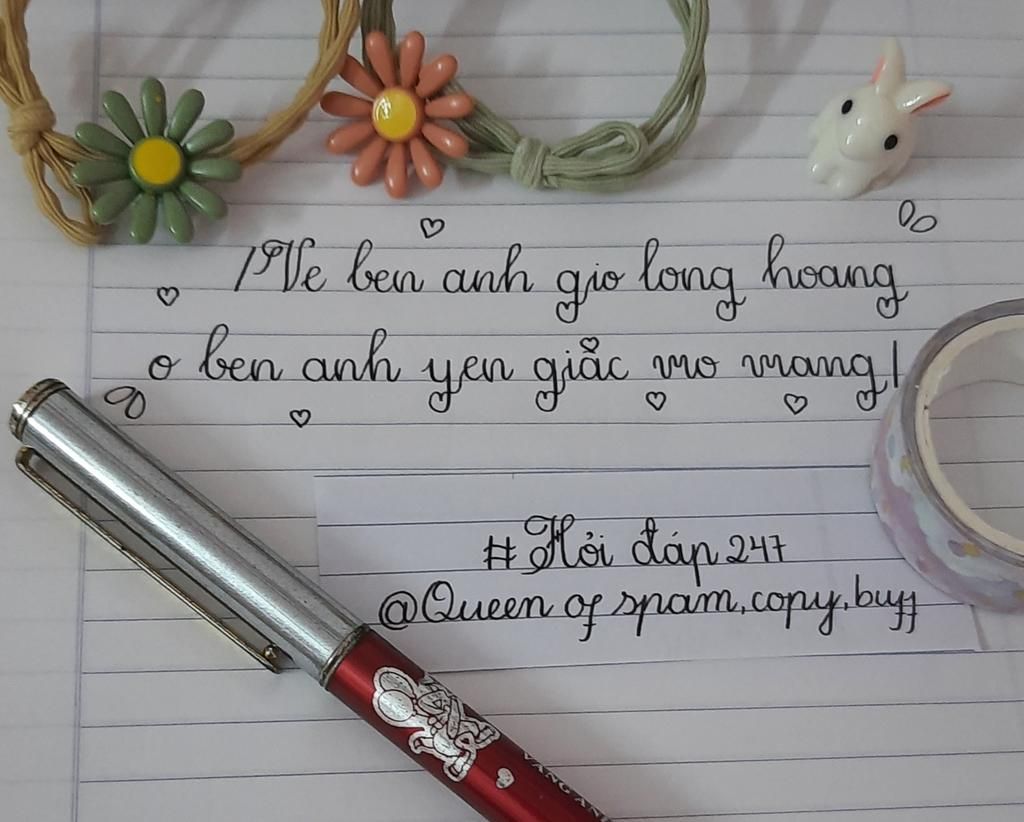 /Ve ben anh gio long hoang
o ben anh yen giấc mo mang/
# Hỏi đáp 247
@Queen of spam,copy,buff